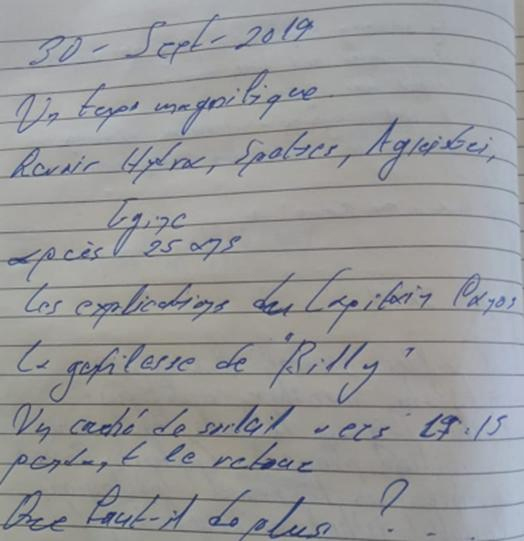 30 - Sept - 2019
Un temps magnifique.
Revoir Hydra, Spetses, Agkistri,
Egine
après 25 ans
Les explications du Capitain Panos
La gentilesse de "Billy"
Un couché de soleil vers 19:15
pendant le retour
Que faut-il de plus ? ...